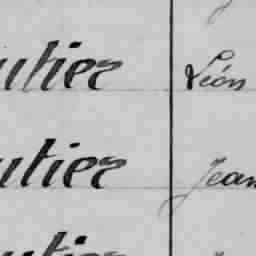 utier Léon
utier Jean
utier